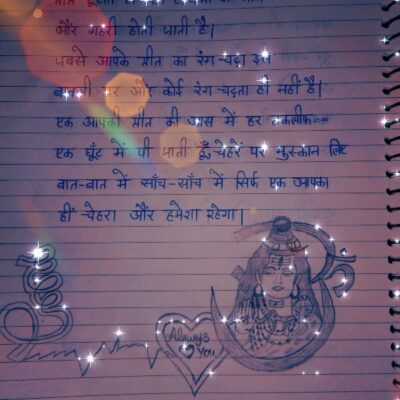 और गहरी होती जाती है।
जबसे आपके मीत का रंग-चढ़ा इस
बावरी पर और कोई रंग-चढ़ता ही नहीं है।
एक आपकी मीत की आस में हर तकलीफ
एक घूँट में पी जाती हूँ, चेहरे पर मुस्कान लिए
बात-बात में साँच-साँच में सिर्फ एक आपका
हीं चेहरा और हमेशा रहेगा।
Always
You